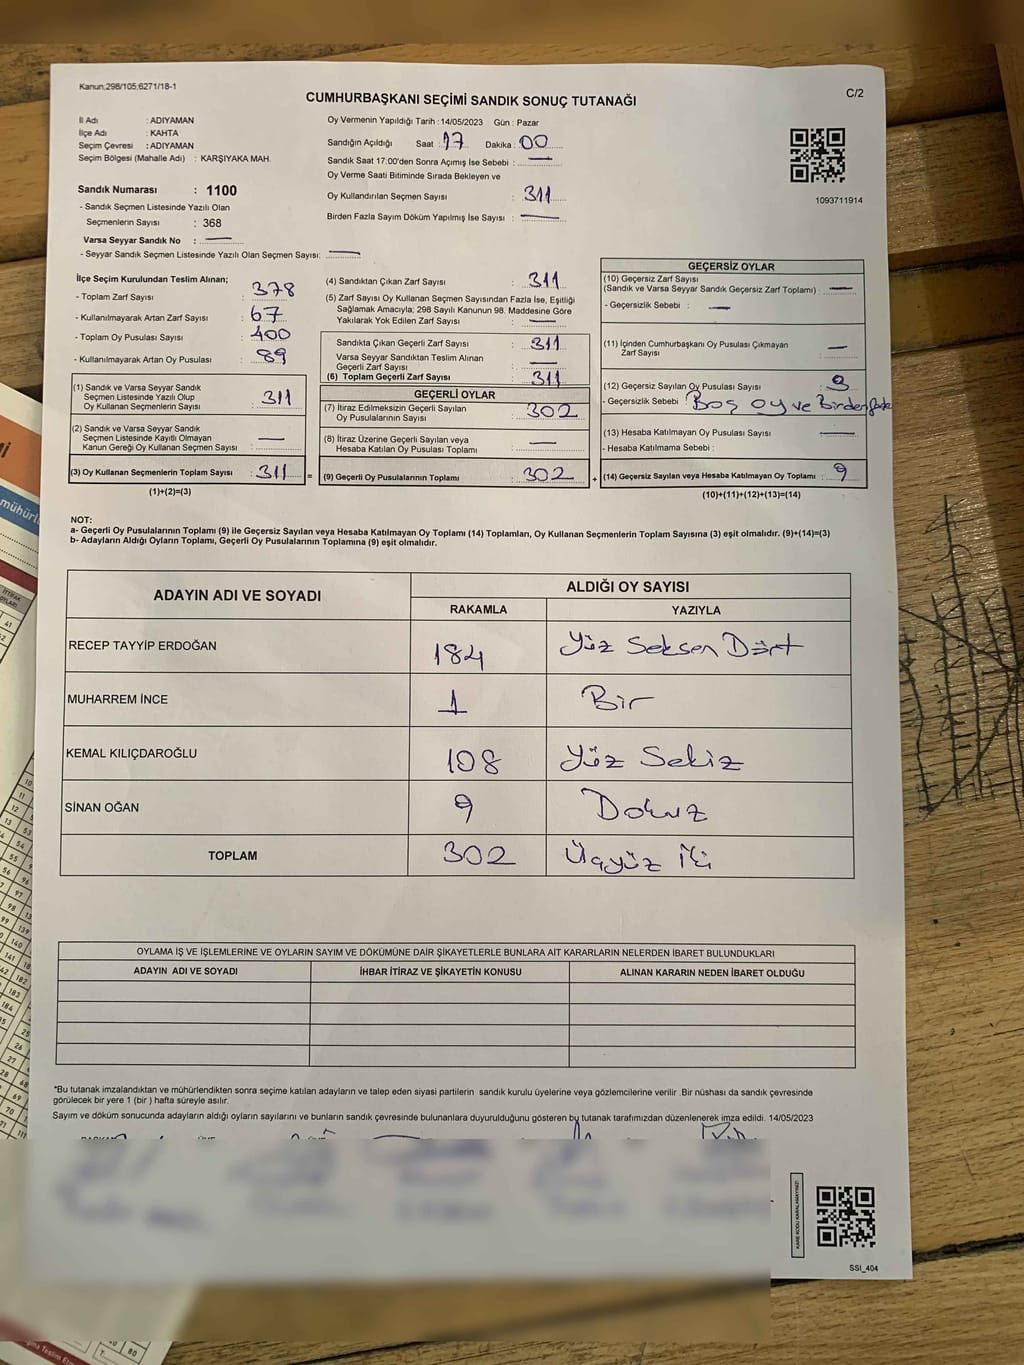 Kanun:298/105;6271/18-1
C/2
CUMHURBAŞKANI SEÇİMİ SANDIK SONUÇ TUTANAĞI
İl Adı : ADIYAMAN
İlçe Adı : KAHTA
Seçim Çevresi : ADIYAMAN
Seçim Bölgesi (Mahalle Adı) : KARŞIYAKA MAH.
Sandık Numarası : 1100
- Sandık Seçmen Listesinde Yazılı Olan
Seçmenlerin Sayısı : 368
Varsa Seyyar Sandık No : —
- Seyyar Sandık Seçmen Listesinde Yazılı Olan Seçmen Sayısı: —
Oy Vermenin Yapıldığı Tarih : 14/05/2023 Gün : Pazar
Sandığın Açıldığı Saat : 17 Dakika : 00
Sandık Saat 17:00'den Sonra Açımış İse Sebebi : —
Oy Verme Saati Bitiminde Sırada Bekleyen ve
Oy Kullandırılan Seçmen Sayısı : 311
Birden Fazla Sayım Döküm Yapılmış İse Sayısı : —
1093711914
İlçe Seçim Kurulundan Teslim Alınan;
- Toplam Zarf Sayısı : 378
- Kullanılmayarak Artan Zarf Sayısı : 67
- Toplam Oy Pusulası Sayısı : 400
- Kullanılmayarak Artan Oy Pusulası : 89
(1) Sandık ve Varsa Seyyar Sandık
Seçmen Listesinde Yazılı Olup
Oy Kullanan Seçmenlerin Sayısı : 311
(2) Sandık ve Varsa Seyyar Sandık
Seçmen Listesinde Kayıtlı Olmayan
Kanun Gereği Oy Kullanan Seçmen Sayısı : —
(3) Oy Kullanan Seçmenlerin Toplam Sayısı : 311 =
(1)+(2)=(3)
(4) Sandıktan Çıkan Zarf Sayısı : 311
(5) Zarf Sayısı Oy Kullanan Seçmen Sayısından Fazla İse, Eşitliği
Sağlamak Amacıyla; 298 Sayılı Kanunun 98. Maddesine Göre
Yakılarak Yok Edilen Zarf Sayısı : —
Sandıkta Çıkan Geçerli Zarf Sayısı : 311
Varsa Seyyar Sandıktan Teslim Alınan
Geçerli Zarf Sayısı : —
(6) Toplam Geçerli Zarf Sayısı : 311
GEÇERLİ OYLAR
(7) İtiraz Edilmeksizin Geçerli Sayılan
Oy Pusulalarının Sayısı : 302
(8) İtiraz Üzerine Geçerli Sayılan veya
Hesaba Katılan Oy Pusulası Toplamı : —
(9) Geçerli Oy Pusulalarının Toplamı : 302 +
GEÇERSİZ OYLAR
(10) Geçersiz Zarf Sayısı
(Sandık ve Varsa Seyyar Sandık Geçersiz Zarf Toplamı) : —
- Geçersizlik Sebebi : —
(11) İçinden Cumhurbaşkanı Oy Pusulası Çıkmayan
Zarf Sayısı : —
(12) Geçersiz Sayılan Oy Pusulası Sayısı : 9
- Geçersizlik Sebebi : Boş oy ve Birden fazla
(13) Hesaba Katılmayan Oy Pusulası Sayısı : —
- Hesaba Katılmama Sebebi :
(14) Geçersiz Sayılan veya Hesaba Katılmayan Oy Toplamı : 9
(10)+(11)+(12)+(13)=(14)
NOT:
a- Geçerli Oy Pusulalarının Toplamı (9) ile Geçersiz Sayılan veya Hesaba Katılmayan Oy Toplamı (14) Toplamları, Oy Kullanan Seçmenlerin Toplam Sayısına (3) eşit olmalıdır. (9)+(14)=(3)
b- Adayların Aldığı Oyların Toplamı, Geçerli Oy Pusulalarının Toplamına (9) eşit olmalıdır.
ADAYIN ADI VE SOYADI ALDIĞI OY SAYISI
RAKAMLA YAZIYLA
RECEP TAYYİP ERDOĞAN 184 Yüz Seksen Dört
MUHARREM İNCE 1 Bir
KEMAL KILIÇDAROĞLU 108 Yüz Sekiz
SİNAN OĞAN 9 Dokuz
TOPLAM 302 Üçyüz İki
OYLAMA İŞ VE İŞLEMLERİNE VE OYLARIN SAYIM VE DÖKÜMÜNE DAİR ŞİKAYETLERLE BUNLARA AİT KARARLARIN NELERDEN İBARET BULUNDUKLARI
ADAYIN ADI VE SOYADI İHBAR İTİRAZ VE ŞİKAYETİN KONUSU ALINAN KARARIN NEDEN İBARET OLDUĞU
*Bu tutanak imzalandıktan ve mühürlendikten sonra seçime katılan adayların ve talep eden siyasi partilerin sandık kurulu üyelerine veya gözlemcilerine verilir .Bir nüshası da sandık çevresinde
görülecek bir yere 1 (bir ) hafta süreyle asılır.
Sayım ve döküm sonucunda adayların aldığı oyların sayılarını ve bunların sandık çevresinde bulunanlara duyurulduğunu gösteren bu tutanak tarafımızdan düzenlenerek imza edildi. 14/05/2023
KARE KODU KARALAMAYINIZ!
SSI_404